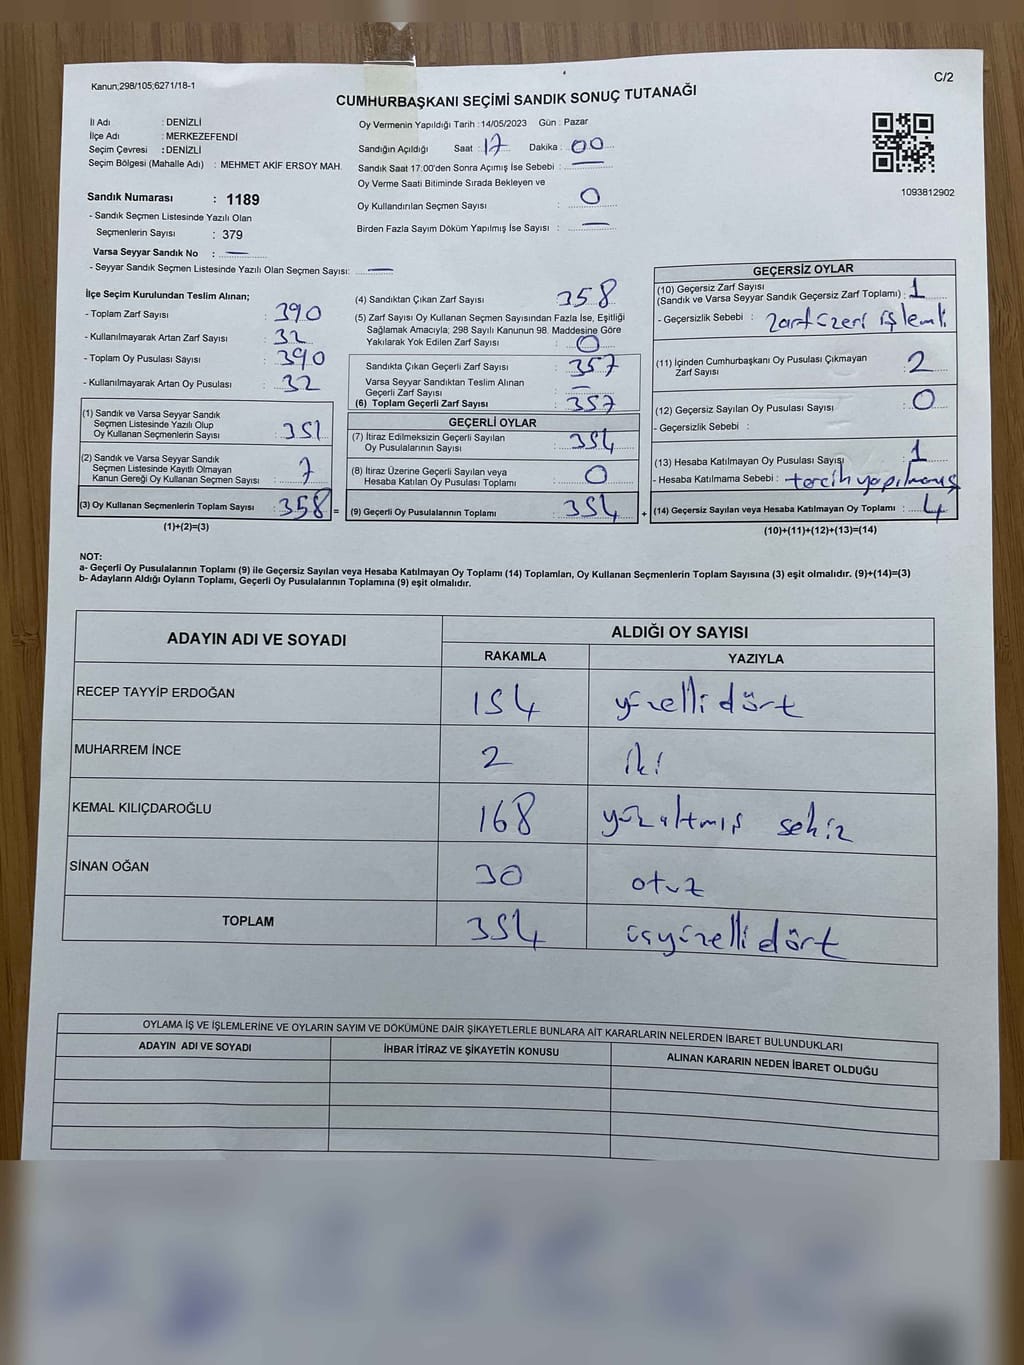 Kanun;298/105;6271/18-1
C/2
CUMHURBAŞKANI SEÇİMİ SANDIK SONUÇ TUTANAĞI
İl Adı : DENİZLİ
İlçe Adı : MERKEZEFENDİ
Seçim Çevresi : DENİZLİ
Seçim Bölgesi (Mahalle Adı) : MEHMET AKİF ERSOY MAH.
Sandık Numarası : 1189
- Sandık Seçmen Listesinde Yazılı Olan
Seçmenlerin Sayısı : 379
Varsa Seyyar Sandık No : —
- Seyyar Sandık Seçmen Listesinde Yazılı Olan Seçmen Sayısı: —
Oy Vermenin Yapıldığı Tarih : 14/05/2023 Gün : Pazar
Sandığın Açıldığı Saat : 17 Dakika : 00
Sandık Saat 17:00'den Sonra Açımış İse Sebebi : —
Oy Verme Saati Bitiminde Sırada Bekleyen ve
Oy Kullandırılan Seçmen Sayısı : 0
Birden Fazla Sayım Döküm Yapılmış İse Sayısı : —
1093812902
İlçe Seçim Kurulundan Teslim Alınan;
- Toplam Zarf Sayısı : 390
- Kullanılmayarak Artan Zarf Sayısı : 32
- Toplam Oy Pusulası Sayısı : 390
- Kullanılmayarak Artan Oy Pusulası : 32
(1) Sandık ve Varsa Seyyar Sandık
Seçmen Listesinde Yazılı Olup
Oy Kullanan Seçmenlerin Sayısı : 351
(2) Sandık ve Varsa Seyyar Sandık
Seçmen Listesinde Kayıtlı Olmayan
Kanun Gereği Oy Kullanan Seçmen Sayısı : 7
(3) Oy Kullanan Seçmenlerin Toplam Sayısı : 358 =
(1)+(2)=(3)
(4) Sandıktan Çıkan Zarf Sayısı : 358
(5) Zarf Sayısı Oy Kullanan Seçmen Sayısından Fazla İse, Eşitliği
Sağlamak Amacıyla; 298 Sayılı Kanunun 98. Maddesine Göre
Yakılarak Yok Edilen Zarf Sayısı : 0
Sandıkta Çıkan Geçerli Zarf Sayısı : 357
Varsa Seyyar Sandıktan Teslim Alınan
Geçerli Zarf Sayısı : —
(6) Toplam Geçerli Zarf Sayısı : 357
GEÇERLİ OYLAR
(7) İtiraz Edilmeksizin Geçerli Sayılan
Oy Pusulalarının Sayısı : 354
(8) İtiraz Üzerine Geçerli Sayılan veya
Hesaba Katılan Oy Pusulası Toplamı : 0
(9) Geçerli Oy Pusulalarının Toplamı : 354 +
GEÇERSİZ OYLAR
(10) Geçersiz Zarf Sayısı
(Sandık ve Varsa Seyyar Sandık Geçersiz Zarf Toplamı) : 1
- Geçersizlik Sebebi : Zarf üzeri işlemli
(11) İçinden Cumhurbaşkanı Oy Pusulası Çıkmayan
Zarf Sayısı : 2
(12) Geçersiz Sayılan Oy Pusulası Sayısı : 0
- Geçersizlik Sebebi :
(13) Hesaba Katılmayan Oy Pusulası Sayısı : 1
- Hesaba Katılmama Sebebi : tercih yapılmamış
(14) Geçersiz Sayılan veya Hesaba Katılmayan Oy Toplamı : 4
(10)+(11)+(12)+(13)=(14)
NOT:
a- Geçerli Oy Pusulalarının Toplamı (9) ile Geçersiz Sayılan veya Hesaba Katılmayan Oy Toplamı (14) Toplamları, Oy Kullanan Seçmenlerin Toplam Sayısına (3) eşit olmalıdır. (9)+(14)=(3)
b- Adayların Aldığı Oyların Toplamı, Geçerli Oy Pusulalarının Toplamına (9) eşit olmalıdır.
ADAYIN ADI VE SOYADI ALDIĞI OY SAYISI
RAKAMLA YAZIYLA
RECEP TAYYİP ERDOĞAN 154 yüzelli dört
MUHARREM İNCE 2 iki
KEMAL KILIÇDAROĞLU 168 yüzaltmış sekiz
SİNAN OĞAN 30 otuz
TOPLAM 354 üçyüzelli dört
OYLAMA İŞ VE İŞLEMLERİNE VE OYLARIN SAYIM VE DÖKÜMÜNE DAİR ŞİKAYETLERLE BUNLARA AİT KARARLARIN NELERDEN İBARET BULUNDUKLARI
ADAYIN ADI VE SOYADI İHBAR İTİRAZ VE ŞİKAYETİN KONUSU ALINAN KARARIN NEDEN İBARET OLDUĞU